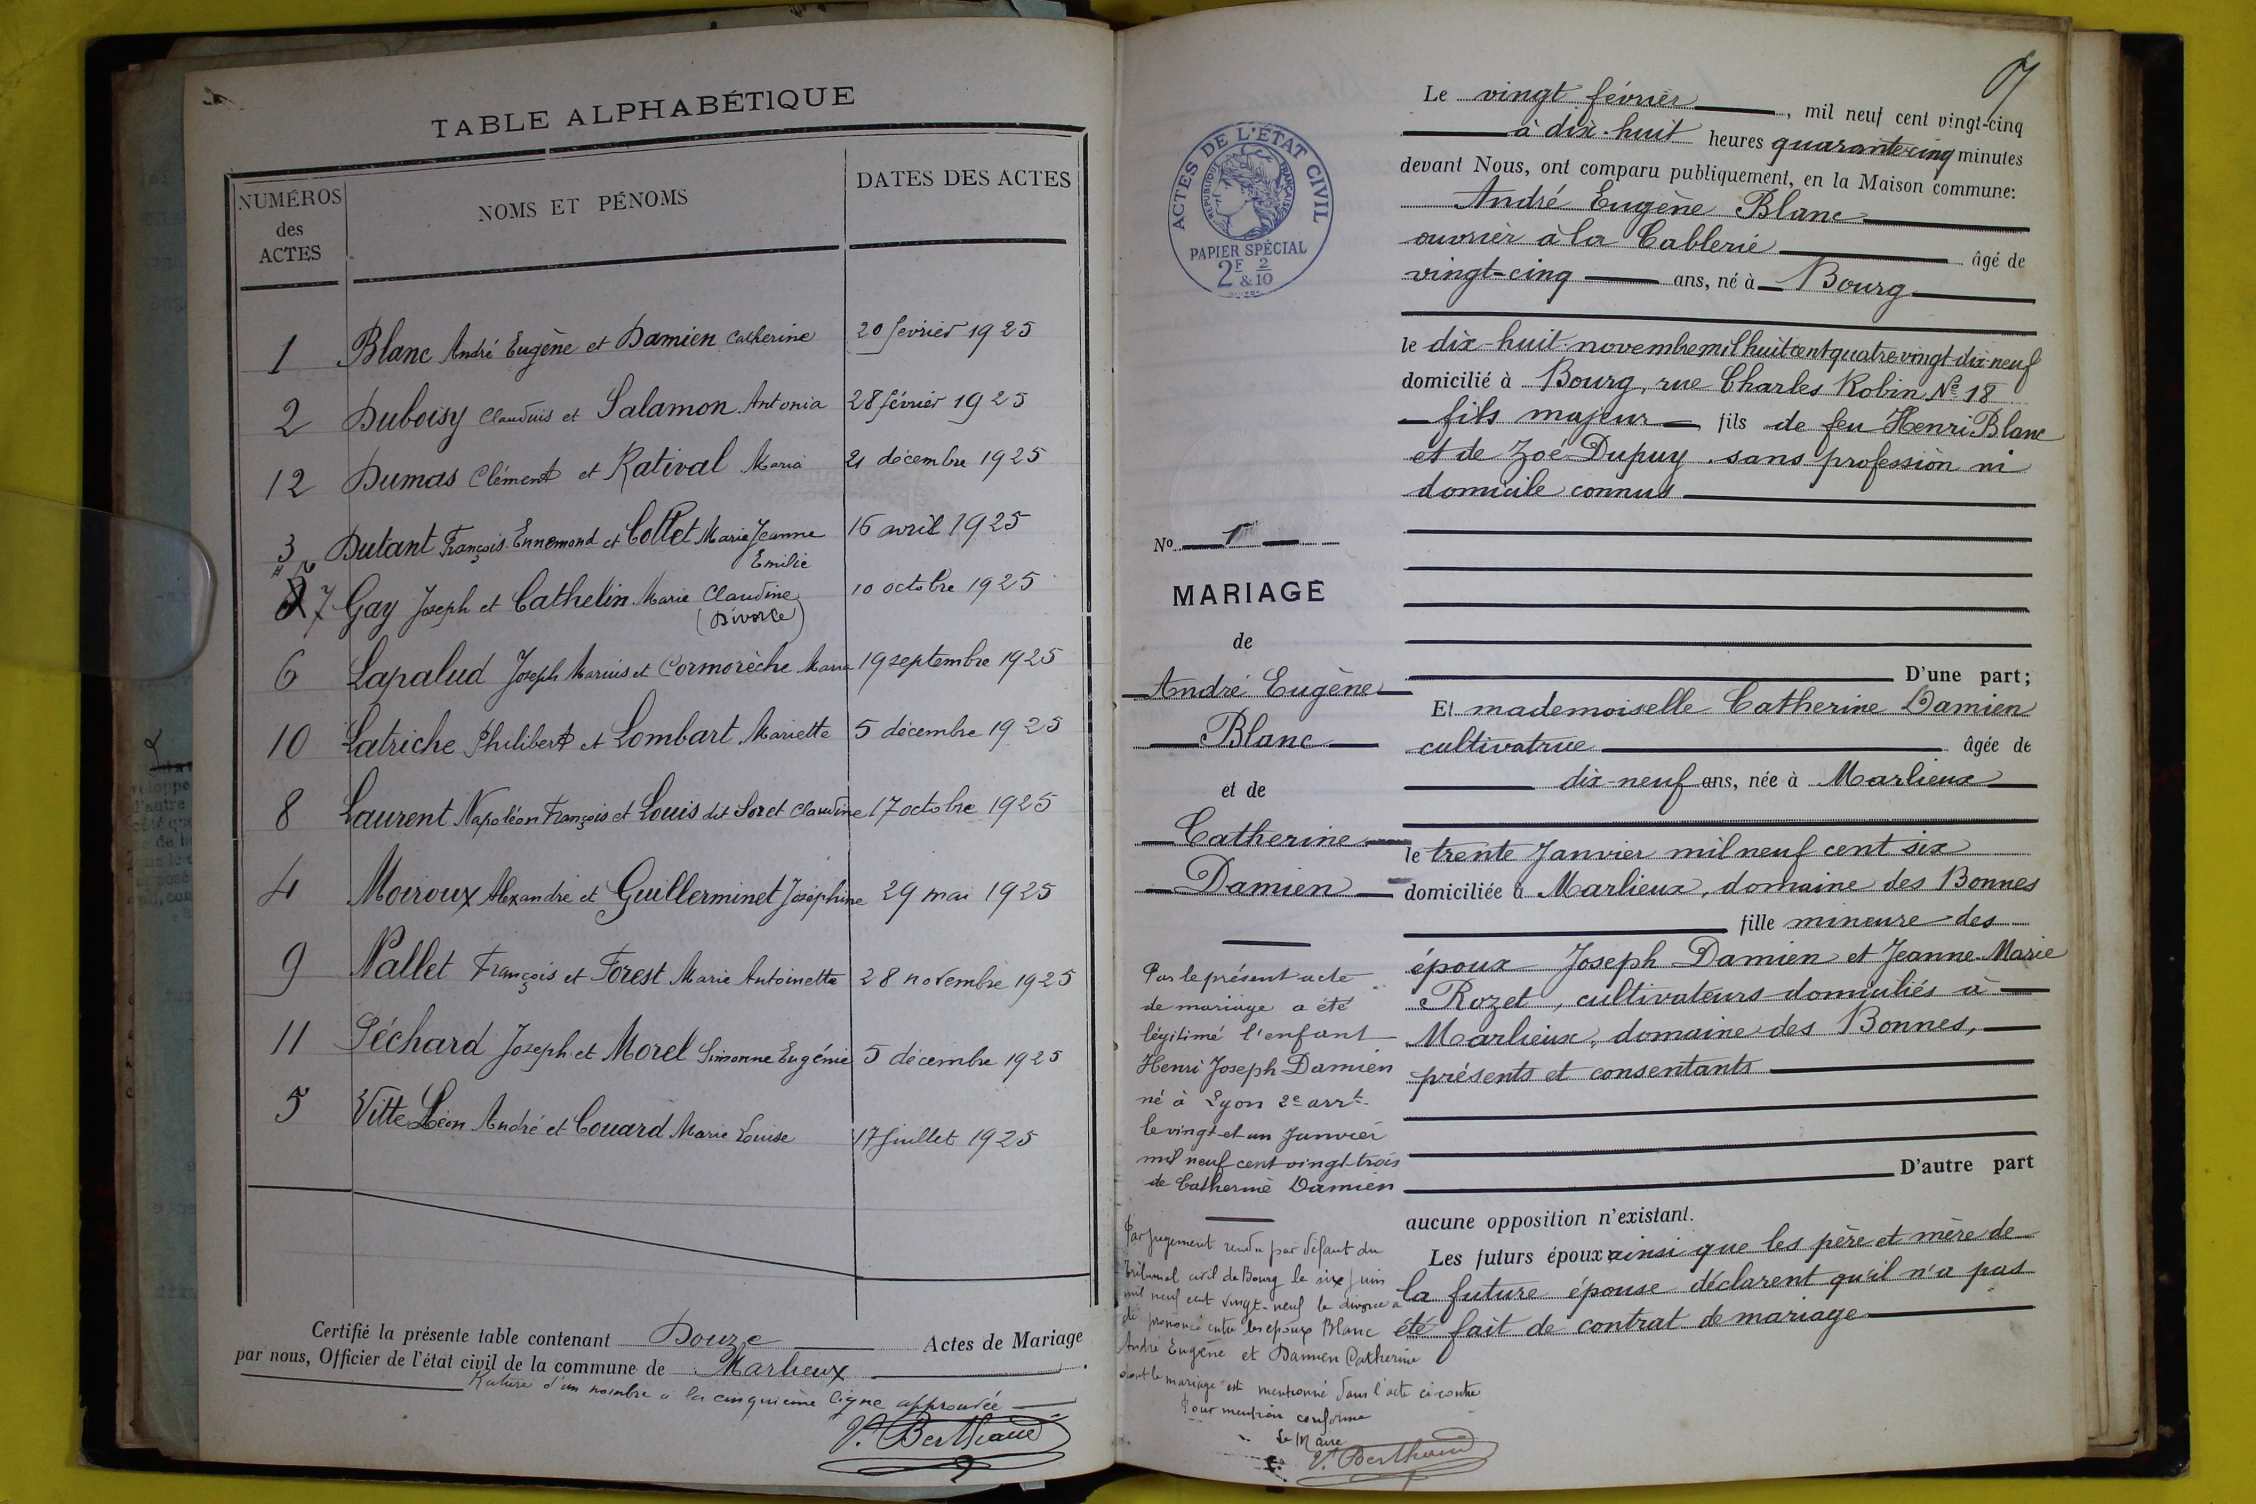 TABLE ALPHABÉTIQUE
NUMÉROS
des
ACTES
NOMS ET PÉNOMS
DATES DES ACTES
1 Blanc André Eugène et Damien Catherine 20 février 1925
2 Duboisy Claudius et Salamon Antonia 28 février 1925
12 Dumas Clément et Rativał Maria 21 décembre 1925
3 Dutant François Ennemond et Collet Marie Jeanne 16 avril 1925
Emilie
7 Gay Joseph et Cathelin Marie Claudine 10 octobre 1925
(Divorce)
6 Lapalud Joseph Marius et Cormorèche Maria 19 septembre 1925
10 Latriche Philibert et Lombart Mariette 5 décembre 1925
8 Laurent Napoléon François et Louis dit Soret Claudine 17 octobre 1925
4 Moiroux Alexandre et Guillerminet Joséphine 29 mai 1925
9 Nallet François et Forest Marie Antoinette 28 novembre 1925
11 Séchard Joseph et Morel Simonne Eugénie 5 décembre 1925
5 Vitte Léon André et Couard Marie Louise 17 juillet 1925
Certifié la présente table contenant Douze Actes de Mariage
par nous, Officier de l'état civil de la commune de Marlieux.
Rature d'un nombre à la cinquième ligne approuvée
V. Berthaud
ACTES DE L'ÉTAT CIVIL
RÉPUBLIQUE FRANÇAISE
PAPIER SPÉCIAL
2F & 2/10
No 1
MARIAGE
de
André Eugène
Blanc
et de
Catherine
Damien
Par le présent acte
de mariage a été
légitimé l'enfant
Henri Joseph Damien
né à Lyon 2e arrt
le vingt et un Janvier
mil neuf cent vingt-trois
de Catherine Damien
Par jugement rendu par défaut du
Tribunal civil de Bourg le six juin
mil neuf cent vingt-neuf le divorce a
été prononcé entre les époux Blanc
André Eugène et Damien Catherine
dont le mariage est mentionné dans l'acte ci-contre
Pour mention conforme
Le Maire
V. Berthaud
Le vingt février, mil neuf cent vingt-cinq
à dix-huit heures quarante cinq minutes
devant Nous, ont comparu publiquement, en la Maison commune:
André Eugène Blanc
ouvrier à la Cablerie âgé de
vingt-cinq ans, né à Bourg
le dix-huit novembre mil huit cent quatre vingt dix neuf
domicilié à Bourg, rue Charles Robin No 18
fils majeur fils de feu Henri Blanc
et de Zoé Dupuy sans profession ni
domicile connus
D'une part;
Et mademoiselle Catherine Damien
cultivatrice âgée de
dix-neuf ans, née à Marlieux
le trente Janvier mil neuf cent six
domiciliée à Marlieux, domaine des Bonnes
fille mineure des
époux Joseph Damien et Jeanne-Marie
Rozet, cultivateurs domiciliés à
Marlieux, domaine des Bonnes,
présents et consentants
D'autre part
aucune opposition n'existant.
Les futurs époux ainsi que les père et mère de
la future épouse déclarent qu'il n'a pas
été fait de contrat de mariage